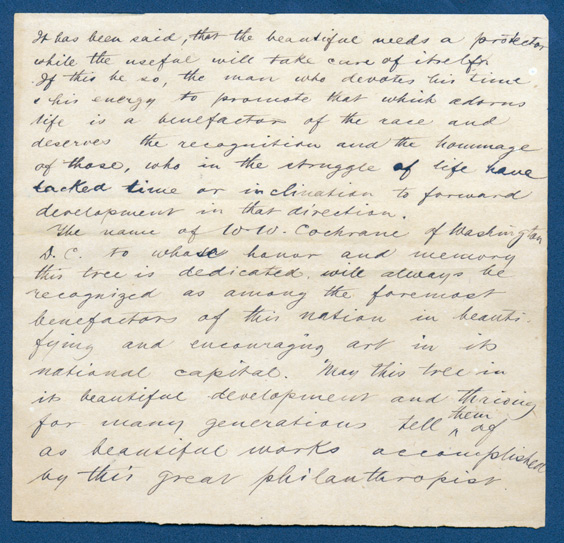 It has been said, that the beautiful needs a protector
while the useful will take care of itself.
If this be so, the man who devotes his time
& his energy to promote that which adorns
life is a benefactor of the race and
deserves the recognition and the hommage
of those, who in the struggle of life have
lacked time or inclination to forward
development in that direction.
The name of W.W. Cochrane of Washington
D.C. to whose honor and memory
this tree is dedicated will always be
recognized as among the foremost
benefactors of this nation in beauti-
fying and encouraging art in its
national capital. May this tree in
its beautiful development and thriving
for many generations tell them of
as beautiful works accomplished
by this great philanthropist.